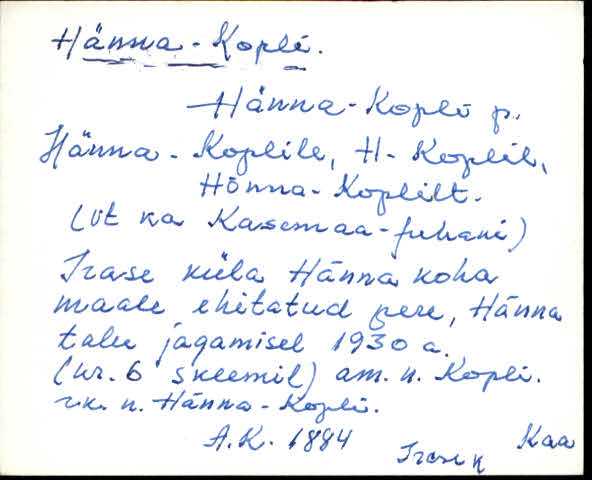 Hänna-Kopli.
Hänna-Kopli p.
Hänna-Koplile, H-Koplil,
Hänna-Koplilt.
(vt ka Kasemaa-Juhani)
Irase küla Hänna koha
maale ehitatud pere, Hänna
talu jagamisel 1930 a.
(nr. 6 skeemil) am. n. Kopli.
rk. n. Hänna-Kopli.
A.K. 1884 Irase k Kaa